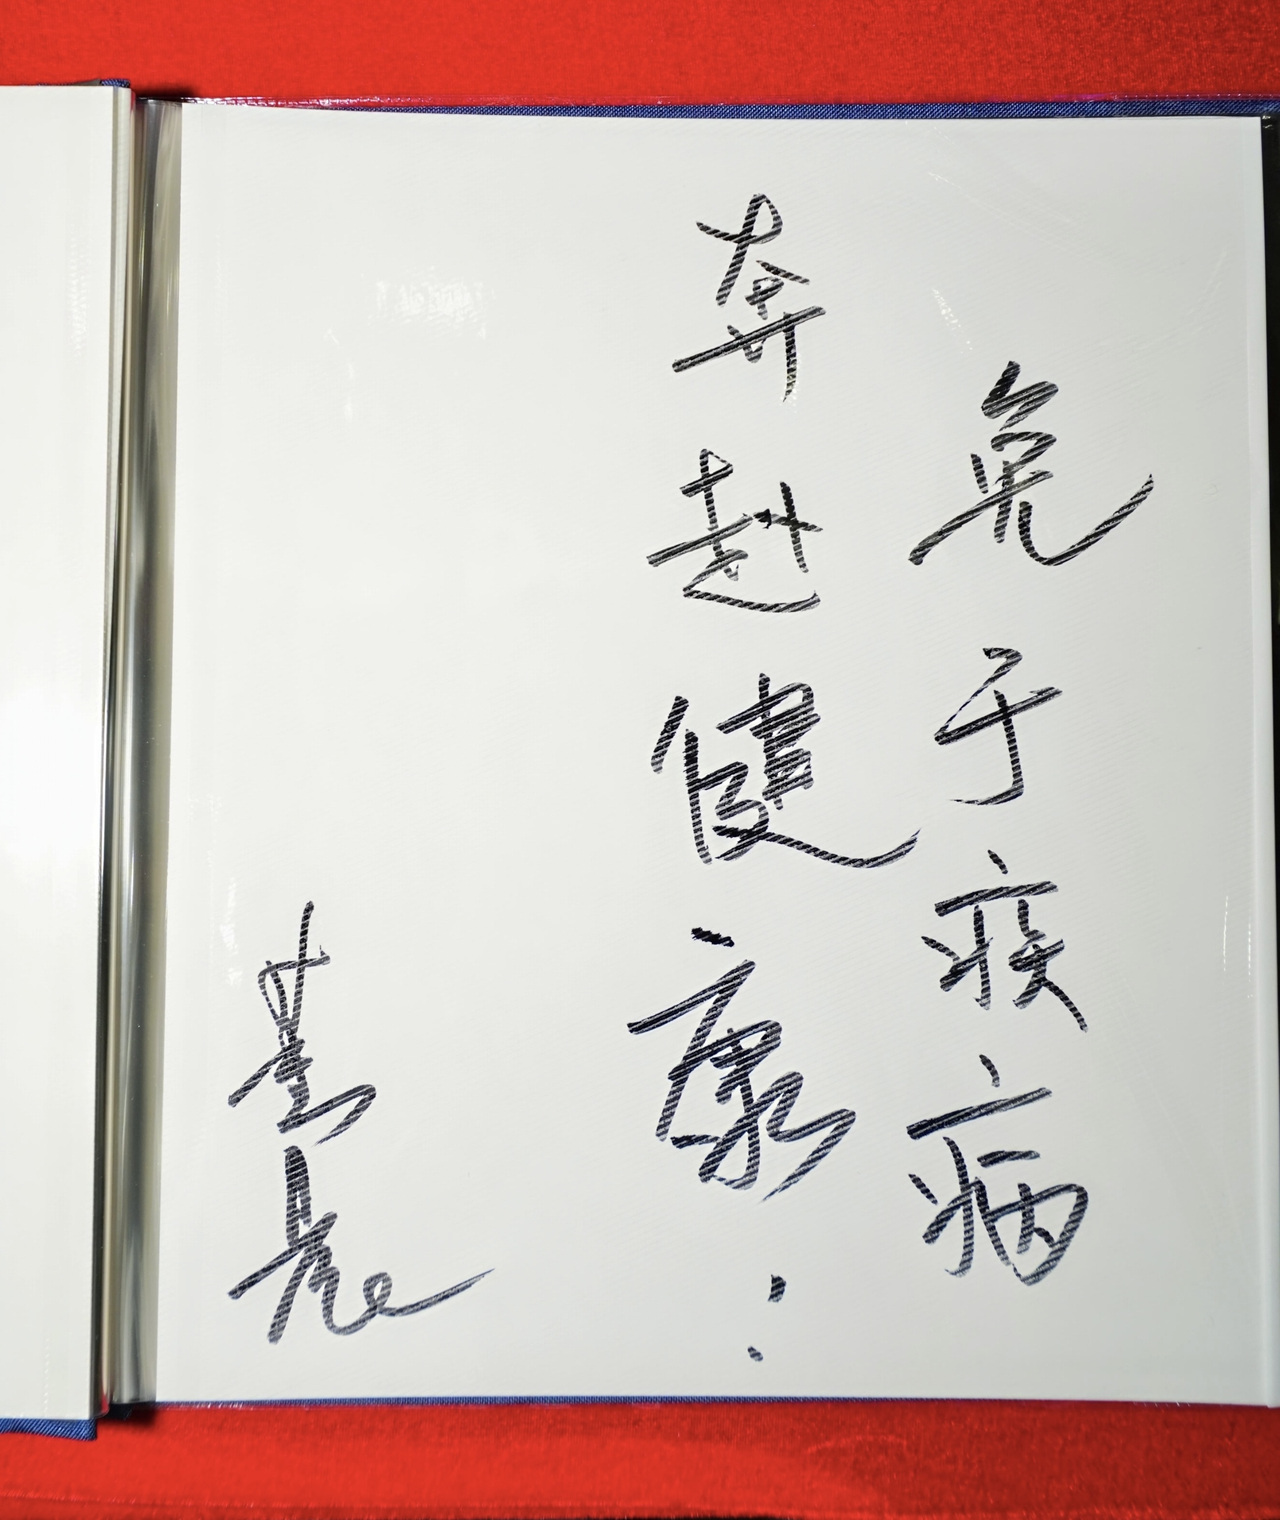 免于疾病
奔赴健康！
董亮